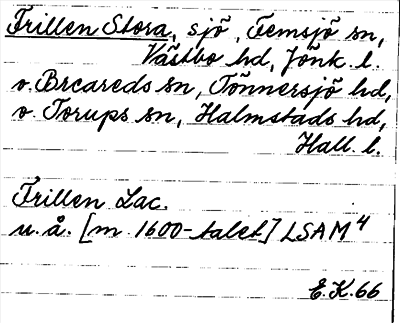 Frillen Stora, sjö, Femsjö sn,
Västbo hd, Jönk. l.
o. Breareds sn, Tönnersjö hd,
o. Torups sn, Halmstads hd,
Hall. l.
Frillen Lac.
u. å. [m. 1600-talet] LSAM 4
E.K. 66